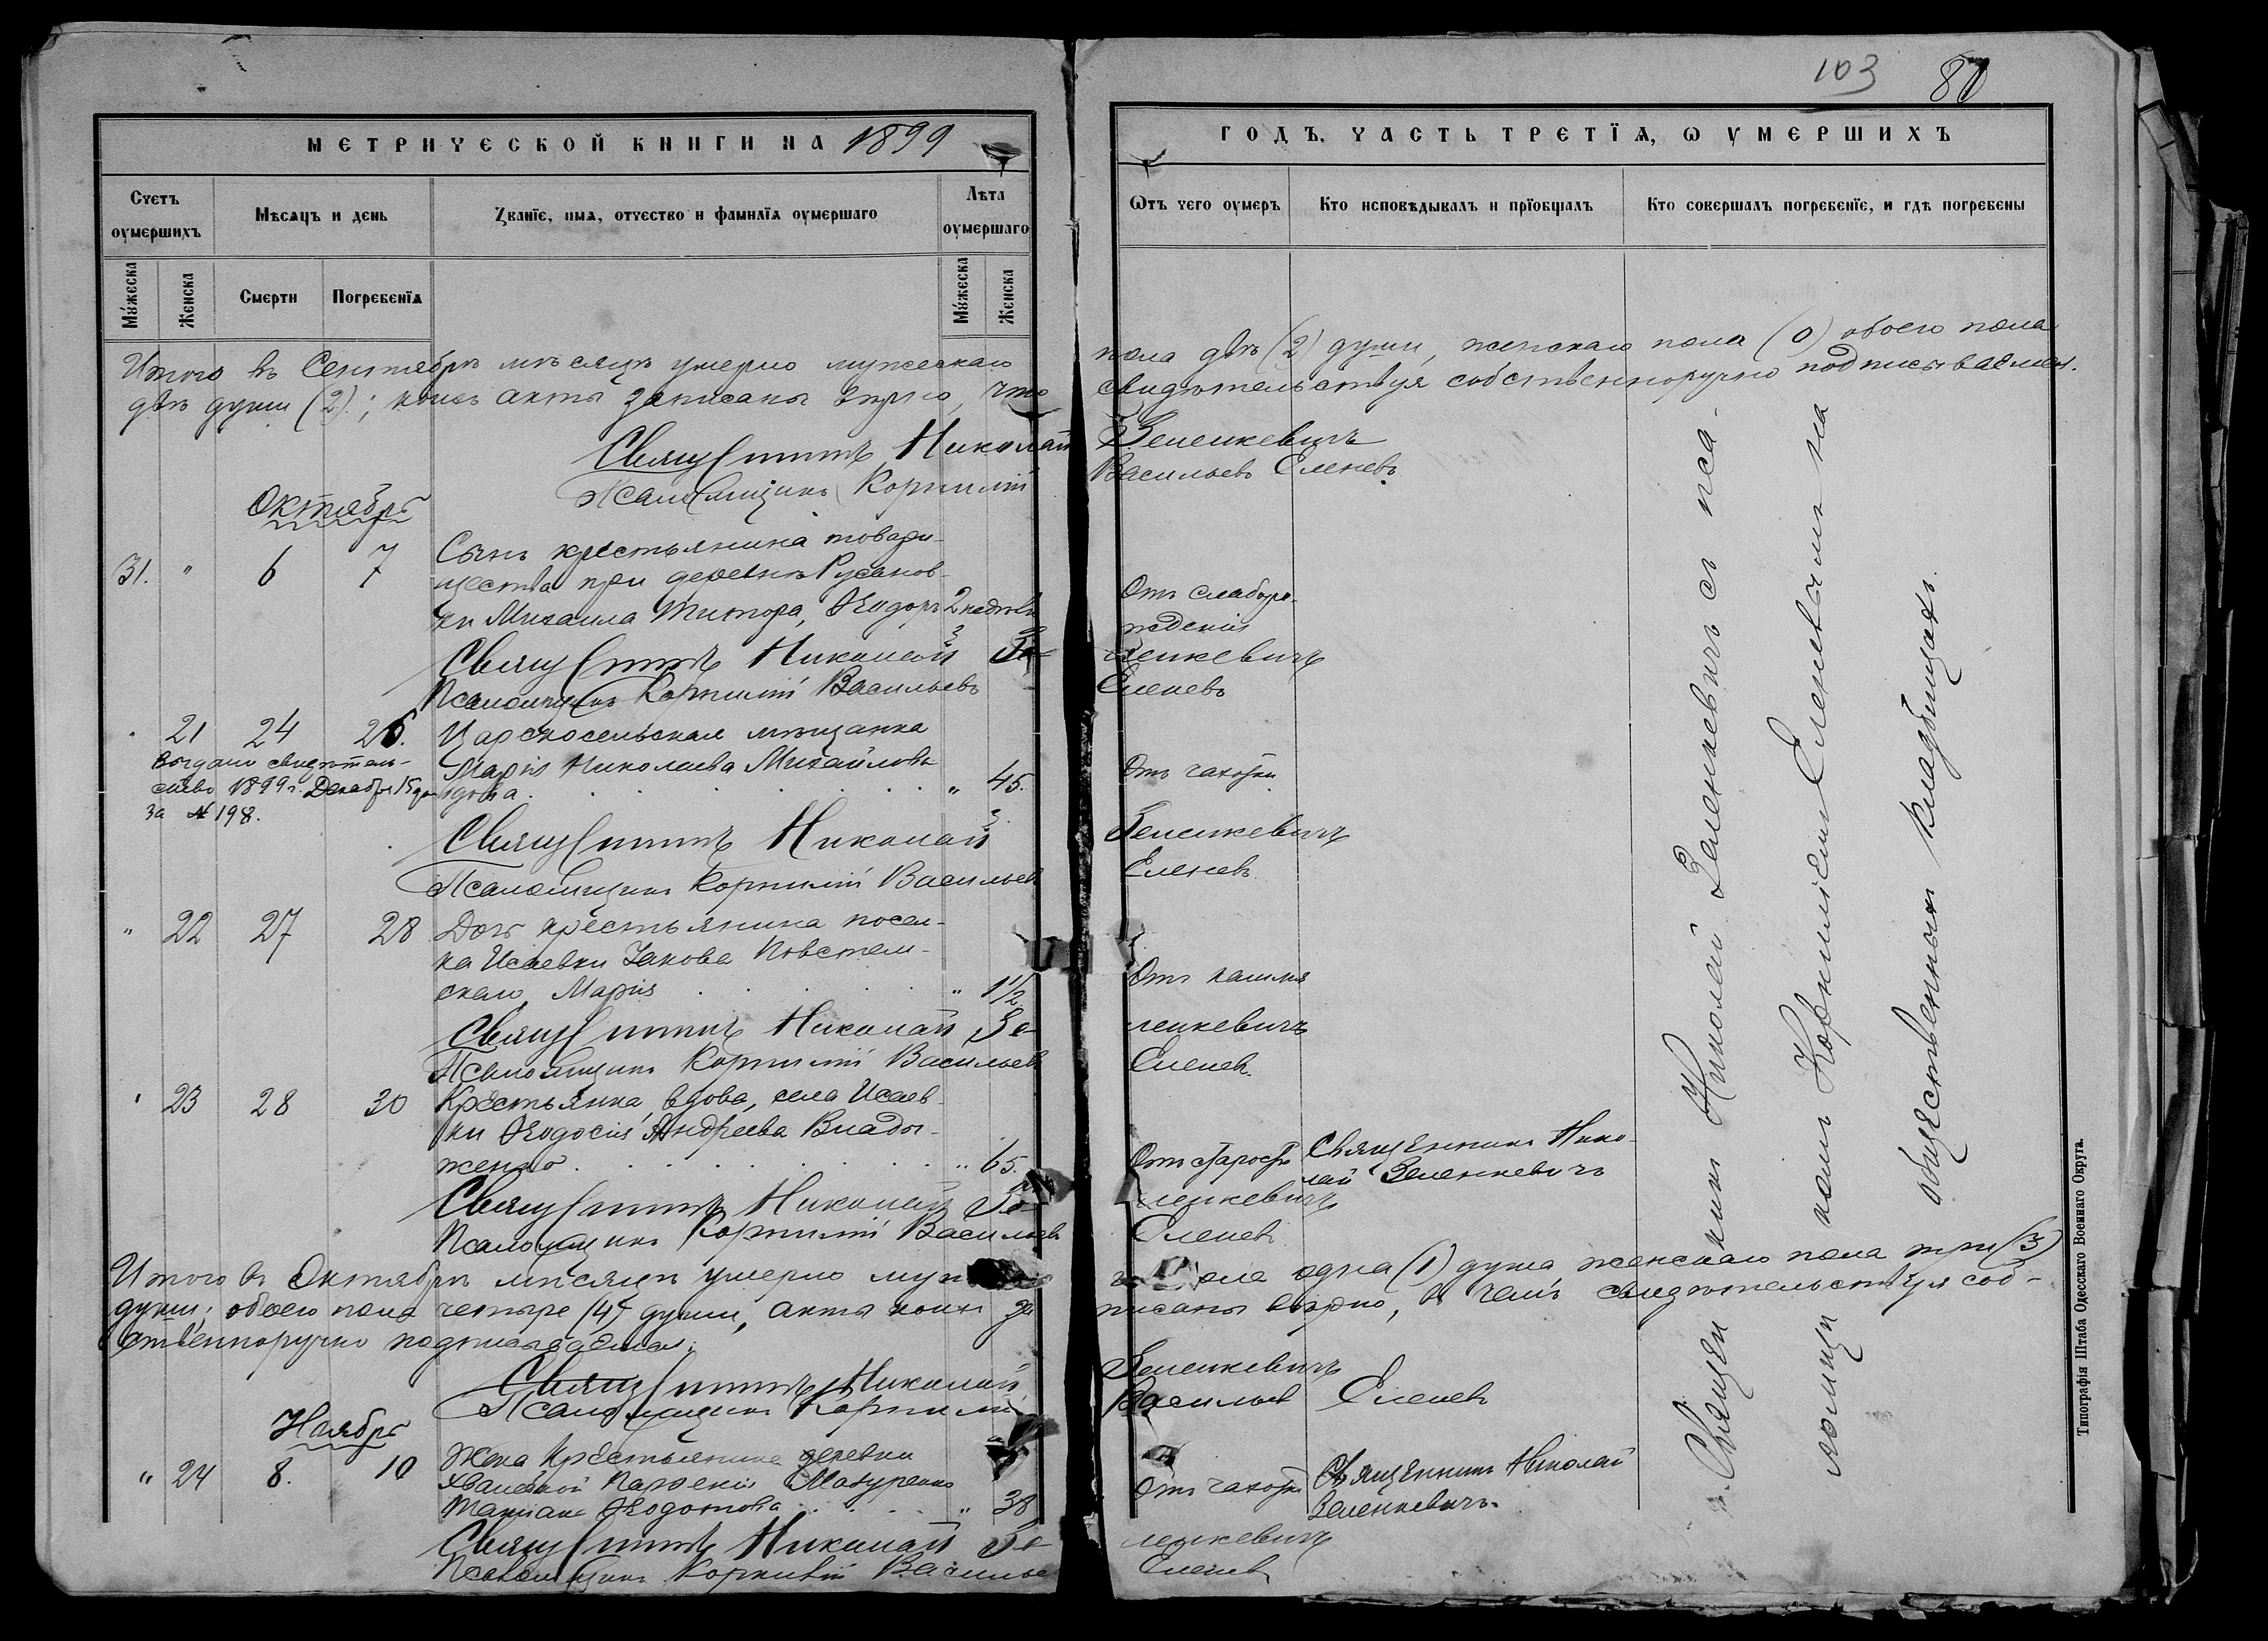 103 80
МЕТРИЧЕСКОЙ КНИГИ НА 1899
Счетъ оумершихъ
Мѣсяцъ и день
Званіе, имя, отчество и фамилія оумершаго
Лѣта оумершаго
Мужеска
Женска
Смерти
Погребенія
Мужеска
Женска
Итого въ Сентябрѣ мѣсяцѣ умерло мужескаго
двѣ души (2); коихъ акты записаны вѣрно, что
Священникъ Николай
Псаломщикъ Корнилій
Октябрь
31. " 6 7 Сынъ крестьянина товари-
щества при деревнѣ Русанов-
ки Михаила Титора, Ѳеодоръ 2 недѣли
Священникъ Николай Зе-
Псаломщикъ Корнилій Васильевъ
" 21 24 26. Царскосельская мѣщанка
Марія Николаева Михайлова
вдова . . . " 45.
Выдано свидѣтель-
ство 1899 г. Декабря 15 дня
за № 198.
Священникъ Николай
Псаломщикъ Корнилій Васильевъ
" 22 27 28 Дочь крестьянина посел-
ка Исаевки Іакова
скаго, Марія . . . " 1½
Священникъ Николай Зе-
Псаломщикъ Корнилій Васильевъ
" 23 28 30 Крестьянка, вдова, села Исаев-
ки Ѳеодосія Андреева
. . . " 65.
Священникъ Николай Зе-
Псаломщикъ Корнилій Васильевъ
Итого въ Октябрѣ мѣсяцѣ умерло
души; обоего пола четыре (4) души, акты коихъ за-
ственноручно подписываемся:
Священникъ Николай
Псаломщикъ Корнилій
Ноябрь
" 24 8. 10 Жена крестьянина деревни
Мазуренко
. . . " 38
Священникъ Николай Зе-
Псаломщикъ Корнилій Василье
ГОДЪ, ЧАСТЬ ТРЕТІЯ, О УМЕРШИХЪ
Отъ чего оумеръ
Кто исповѣдывалъ и пріобщалъ
Кто совершалъ погребеніе, и гдѣ погребены
пола двѣ (2) души, женскаго пола (0) обоего пола
свидѣтельствуя собственноручно подписываемся.
Зеленкевичъ
Васильевъ Еленевъ.
Отъ слаборо-
жденія
ленкевичъ
Еленевъ
Отъ чахотки
Зеленкевичъ
Еленевъ
Отъ кашля
ленкевичъ
Еленевъ.
Отъ старости
Священникъ Нико-
лай Зеленкевичъ
ленкевичъ
Еленевъ
пола одна (1) душа женскаго пола три (3)
писаны вѣрно, въ чемъ свидѣтельствуя соб-
Зеленкевичъ
Васильевъ Еленевъ
Отъ чахотки
Священникъ Николай
Зеленкевичъ.
ленкевичъ
Еленевъ
Священникъ Николай Зеленкевичъ съ пса-
ломщикомъ Корниліемъ Еленевымъ на
общественныхъ кладбищахъ.
Типографія Штаба Одесскаго Военнаго Округа.